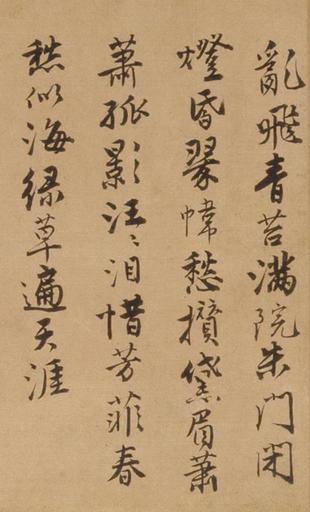 亂飛青苔滿院朱門閉
燈昏翠幃愁攢黛眉蕭
蕭孤影汪〻泪惜芳菲春
愁似海緑草遍天涯